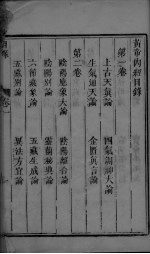 黃帝內經目錄
第一卷
上古天真論
四氣調神大論
生氣通天論
金匱真言論
第二卷
陰陽應象大論
陰陽離合論
陰陽別論
靈蘭秘典論
六節藏象論
五藏生成論
五藏別論
異法方宜論